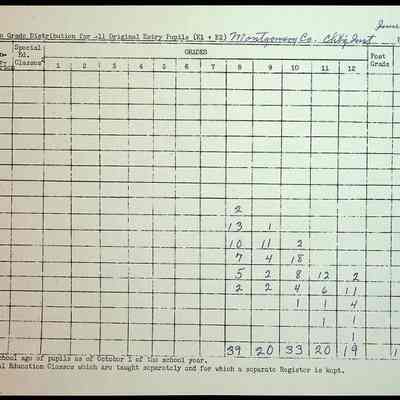 June
n Grade Distribution for All Original Entry Pupils (E1 + E2) Montgomery Co. Chbg Inst
Special Ed. Classes GRADES Post Grade
1 2 3 4 5 6 7 8 9 10 11 12
2
13 1
10 11 2
7 4 18
5 2 8 12 2
2 2 4 6 11
1 1 4
1 1
1
39 20 33 20 19 1
chool age of pupils as of October 1 of the school year.
al Education Classes which are taught separately and for which a separate Register is kept.